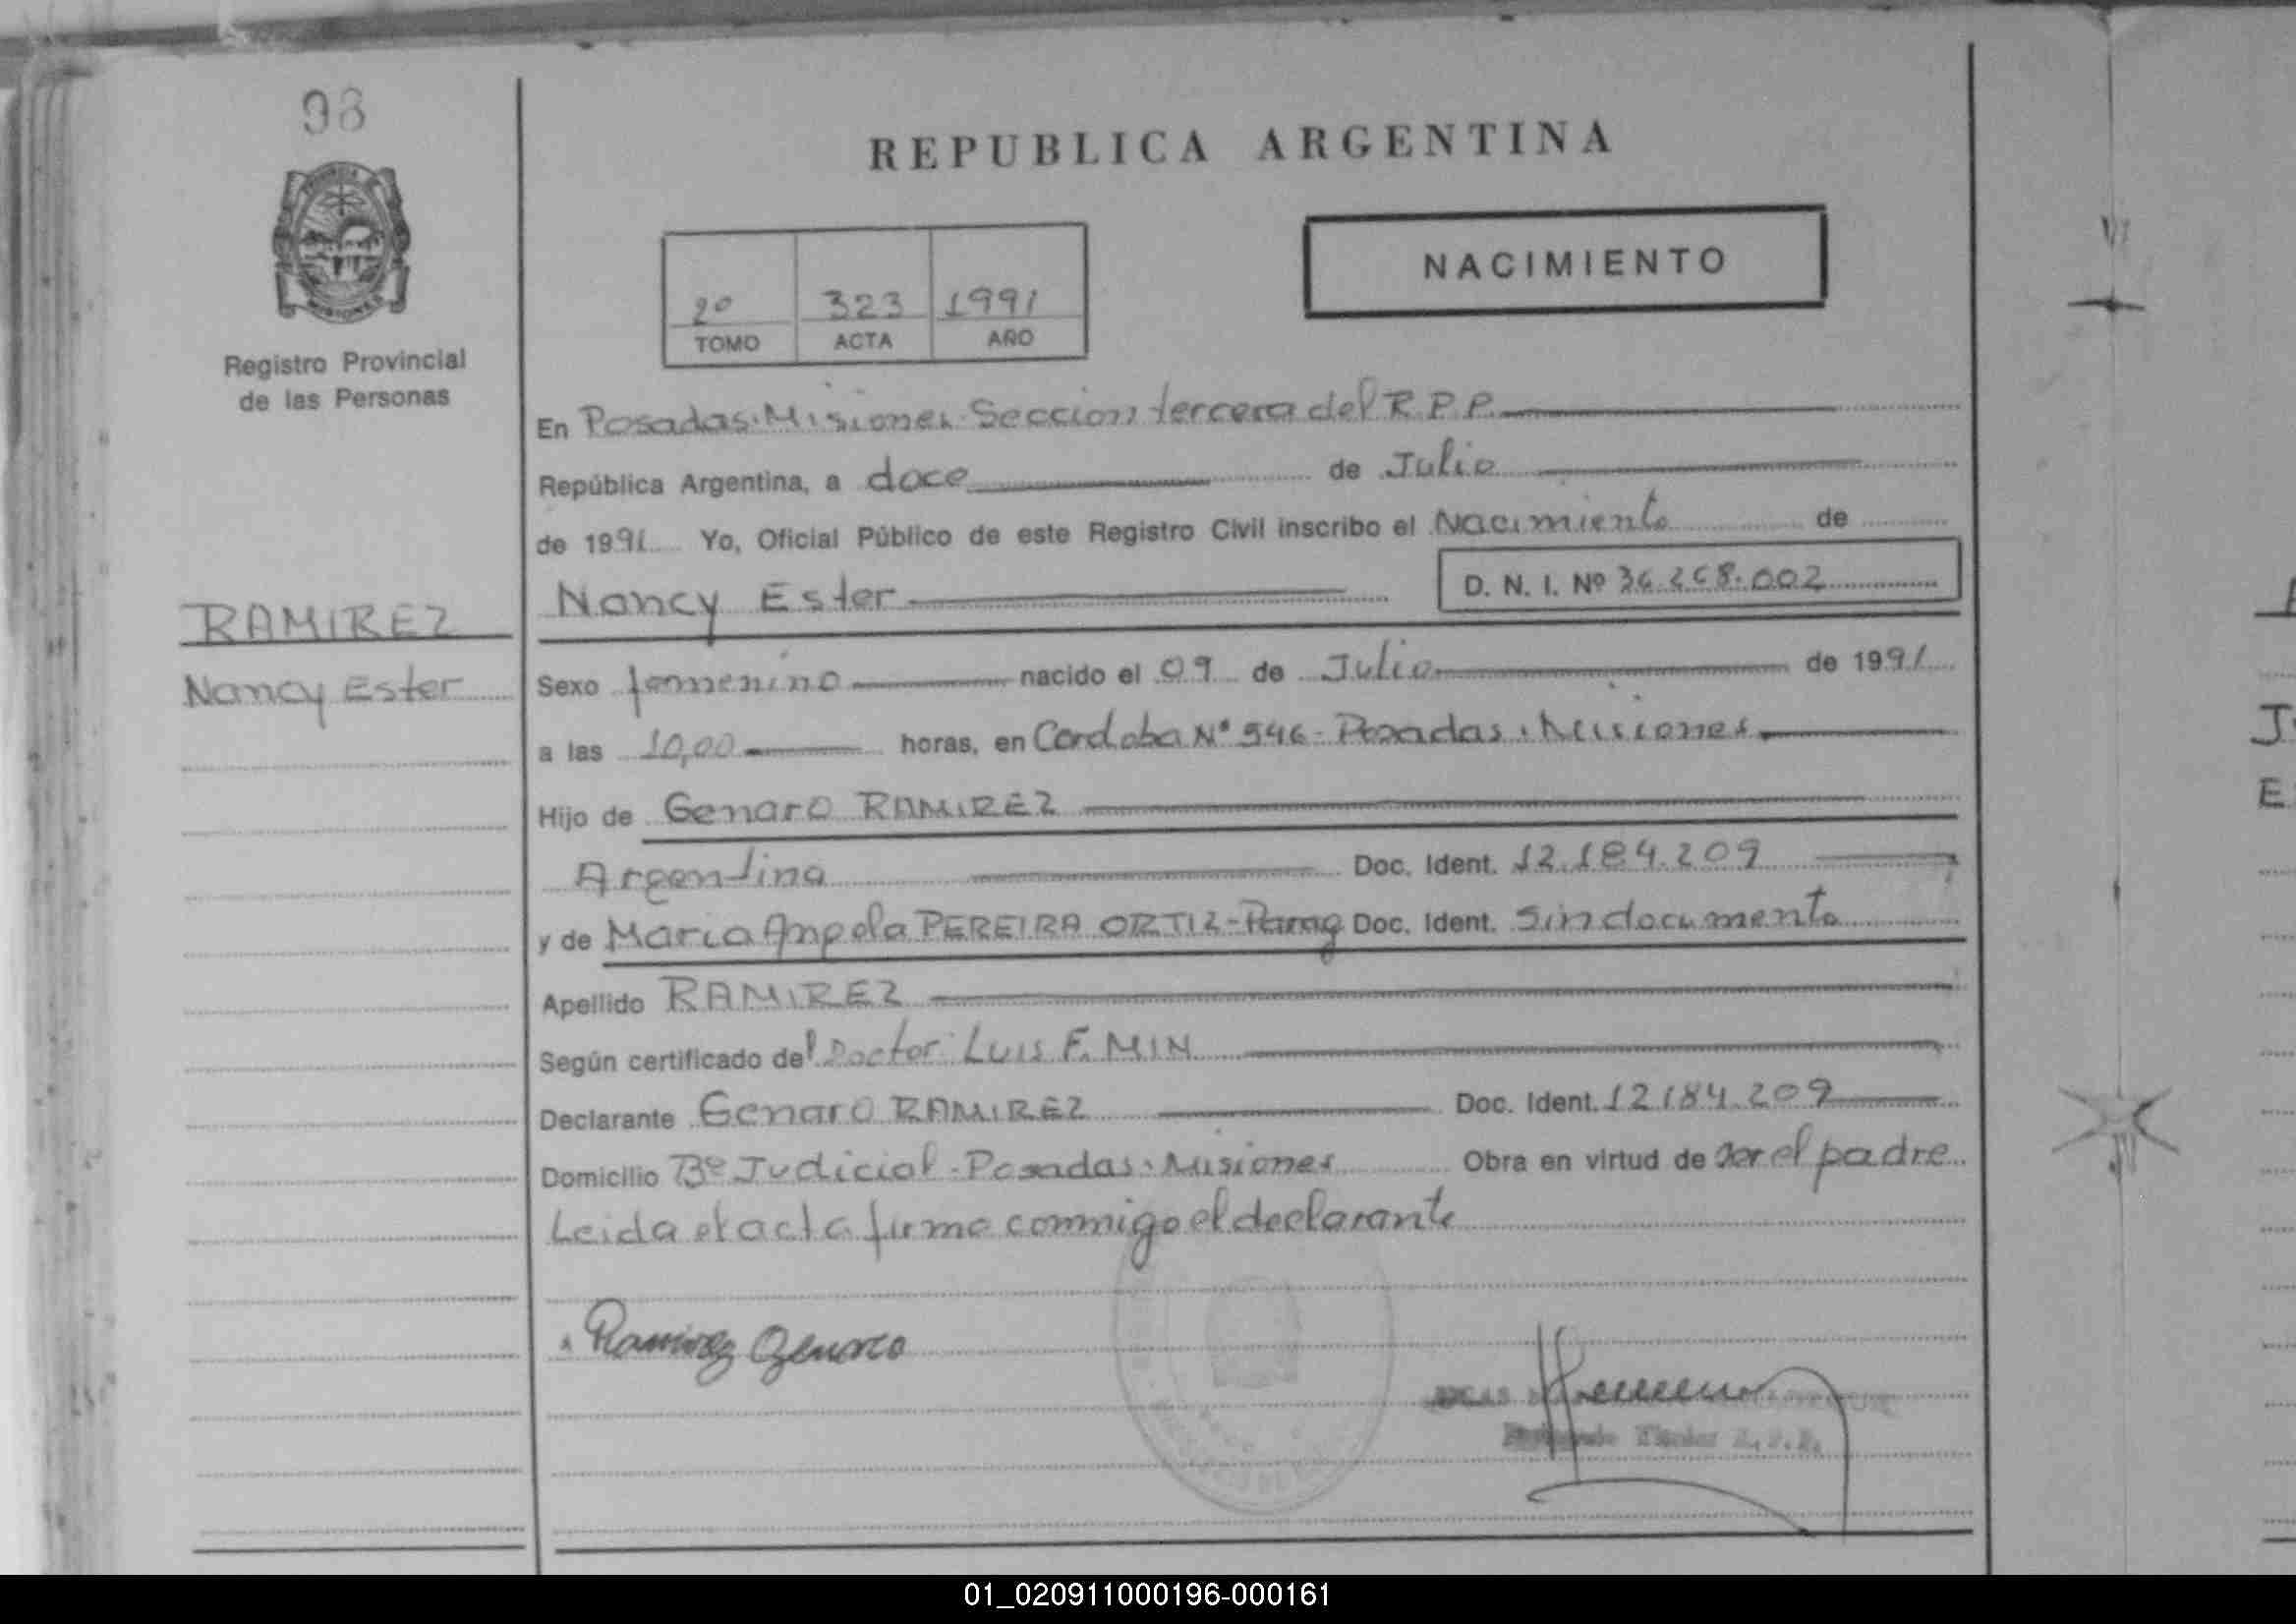 98
REPUBLICA ARGENTINA
NACIMIENTO
2º 323 1991
TOMO ACTA AÑO
Registro Provincial
de las Personas
En Posadas. Misiones. Seccion tercera del R.P.P.
República Argentina, a doce de Julio
de 1991 Yo, Oficial Público de este Registro Civil inscribo el Nacimiento de
Nancy Ester D. N. I. Nº 36.268.002
RAMIREZ
Nancy Ester
Sexo femenino nacido el 09 de Julio de 1991
a las 10,00 horas, en Cordoba Nº 546 - Posadas. Misiones
Hijo de Genaro RAMIREZ
Argentino Doc. Ident. 12.184.209
y de Maria Angela PEREIRA ORTIZ - Parag Doc. Ident. Sin documento
Apellido RAMIREZ
Según certificado del Doctor Luis F. MIN
Declarante Genaro RAMIREZ Doc. Ident. 12184.209
Domicilio Bº Judicial - Posadas. Misiones Obra en virtud de ser el padre
Leida el acta firma conmigo el declarante
Ramirez Genaro
Titular R.P.P.
01_020911000196-000161